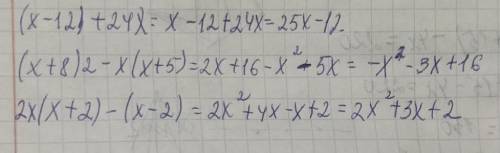 (x-12) + 24x = x - 12 + 24x = 25x - 12.
(x+8)2 - x(x+5) = 2x + 16 - x² - 5x = -x² - 3x + 16
2x(x+2) - (x-2) = 2x² + 4x - x + 2 = 2x² + 3x + 2